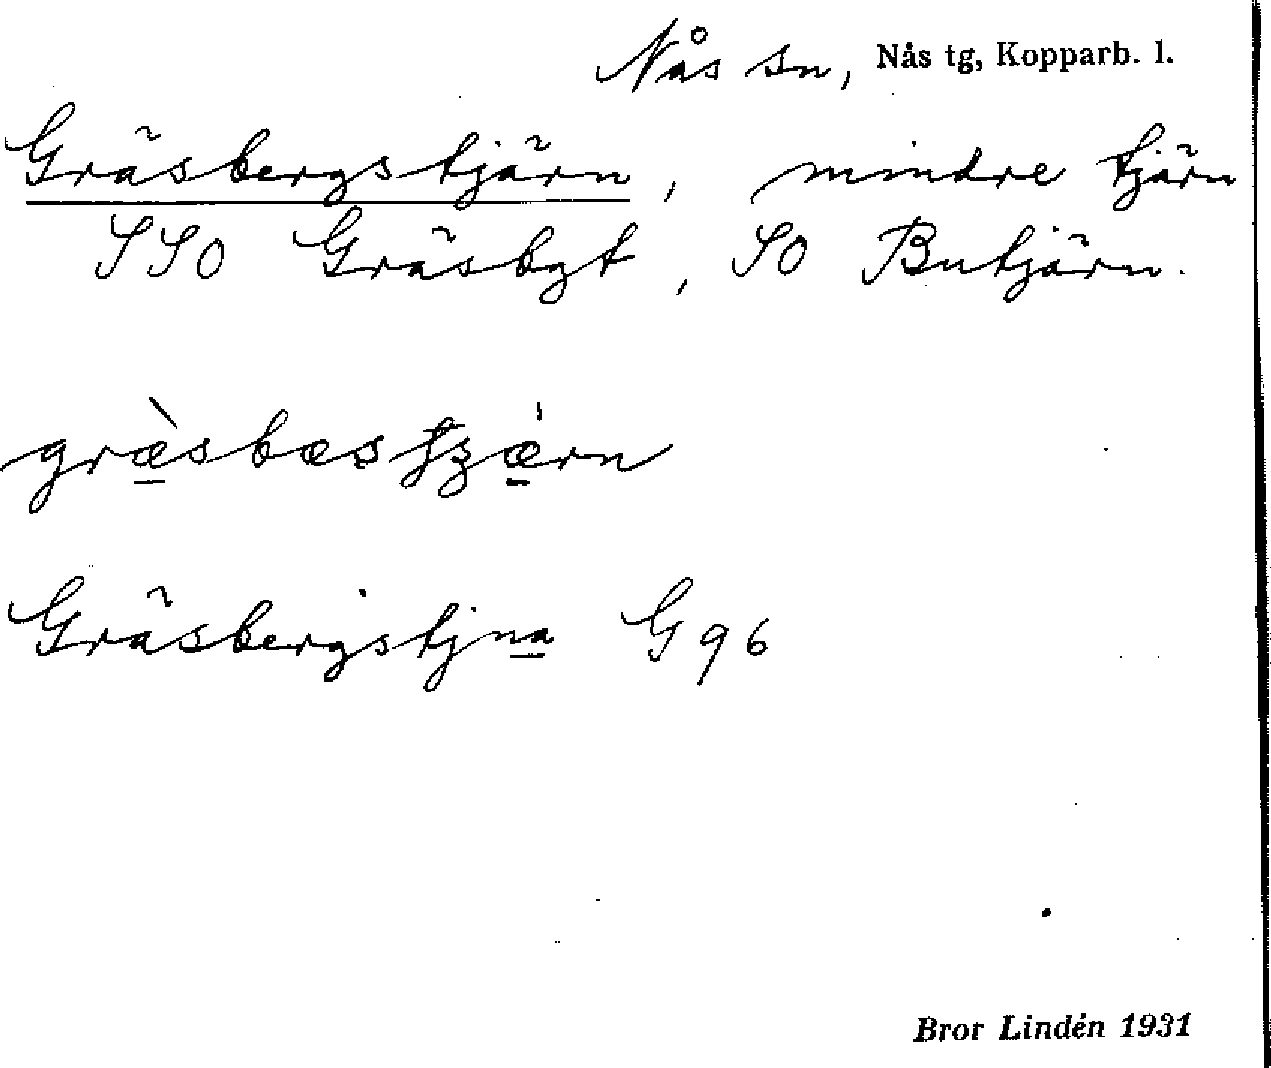 Nås sn, Nås tg, Kopparb. l.
Gräsbergstjärn, mindre tjärn
SSO Gräsbgt, SO Butjärn.
Gräsbergstjna G 96
Bror Lindén 1931